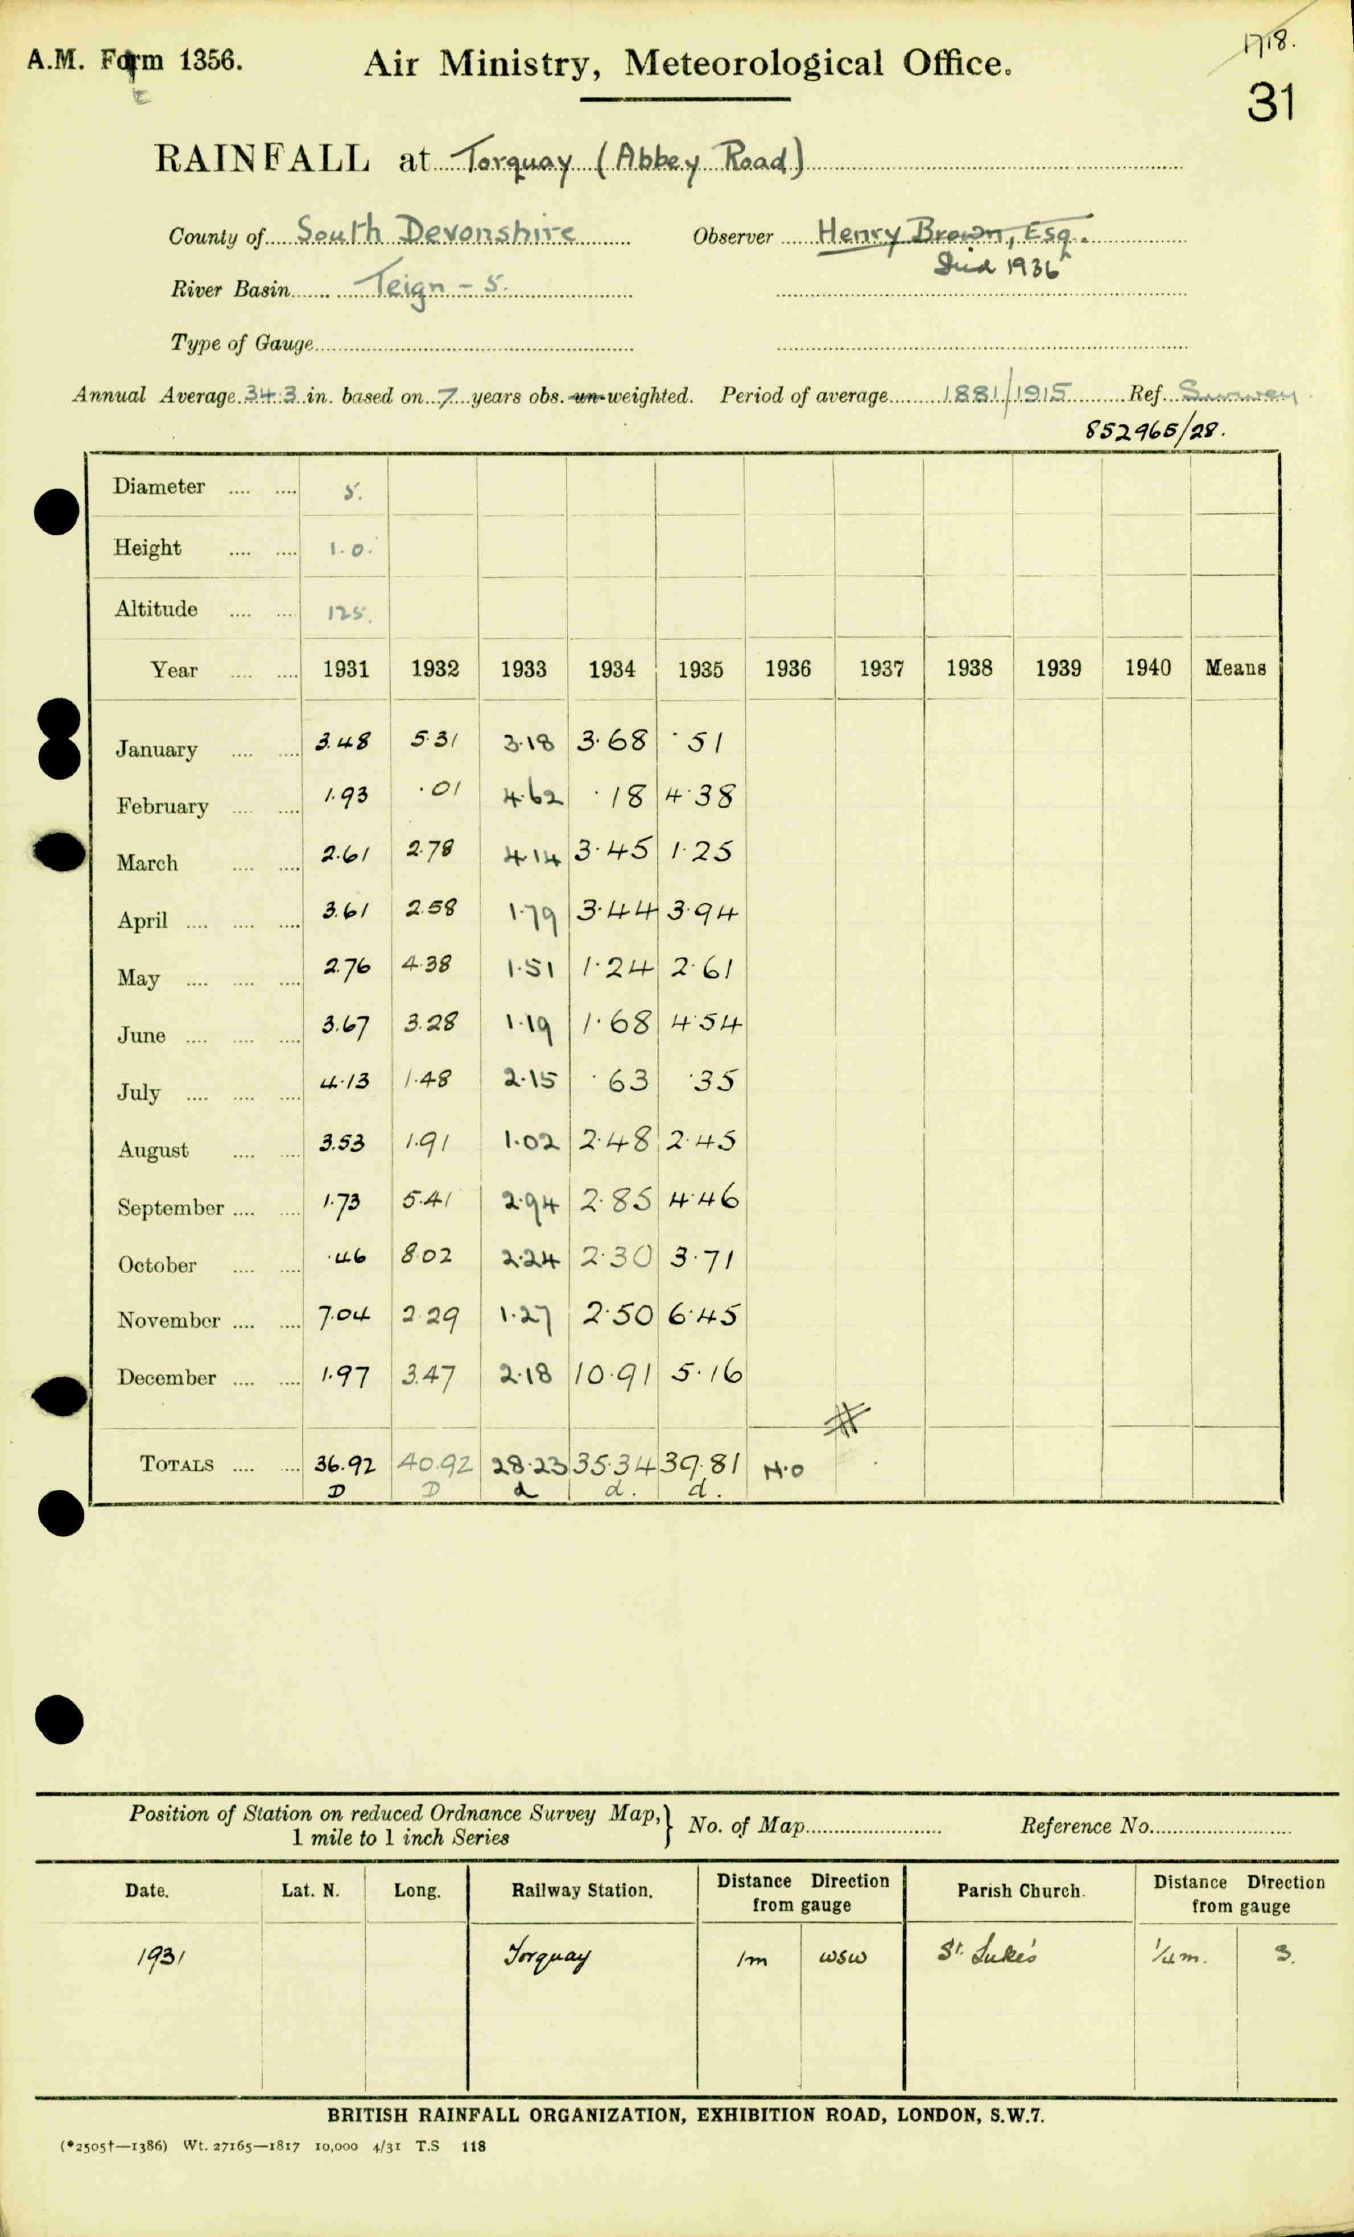 A.M. Form 1356.
Air Ministry, Meteorological Office.
1718.
31
RAINFALL at Torquay (Abbey Road)
County of South Devonshire Observer Henry Brown, Esq.
Died 1936
River Basin Teign - 5.
Type of Gauge
Annual Average 34.3 in. based on 7 years obs. un-weighted. Period of average 1881/1915 Ref. Survey
852965/28.
Diameter 5.
Height 1.0.
Altitude 125.
Year 1931 1932 1933 1934 1935 1936 1937 1938 1939 1940 Means
January 3.48 5.31 3.18 3.68 .51
February 1.93 .01 4.62 .18 4.38
March 2.61 2.78 4.14 3.45 1.25
April 3.61 2.58 1.79 3.44 3.94
May 2.76 4.38 1.51 1.24 2.61
June 3.67 3.28 1.19 1.68 4.54
July 4.13 1.48 2.15 .63 .35
August 3.53 1.91 1.02 2.48 2.45
September 1.73 5.41 2.94 2.85 4.46
October .46 8.02 2.24 2.30 3.71
November 7.04 2.29 1.27 2.50 6.45
December 1.97 3.47 2.18 10.91 5.16
#
TOTALS 36.92 40.92 28.23 35.34 39.81 N.O
D D d d. d.
Position of Station on reduced Ordnance Survey Map, } No. of Map Reference No.
1 mile to 1 inch Series
Date. Lat. N. Long. Railway Station. Distance Direction from gauge Parish Church. Distance Direction from gauge
1931 Torquay 1m WSW St. Luke's 1/4 m. S.
BRITISH RAINFALL ORGANIZATION, EXHIBITION ROAD, LONDON, S.W.7.
(*2505†—1386) Wt. 27165—1817 10,000 4/31 T.S 118